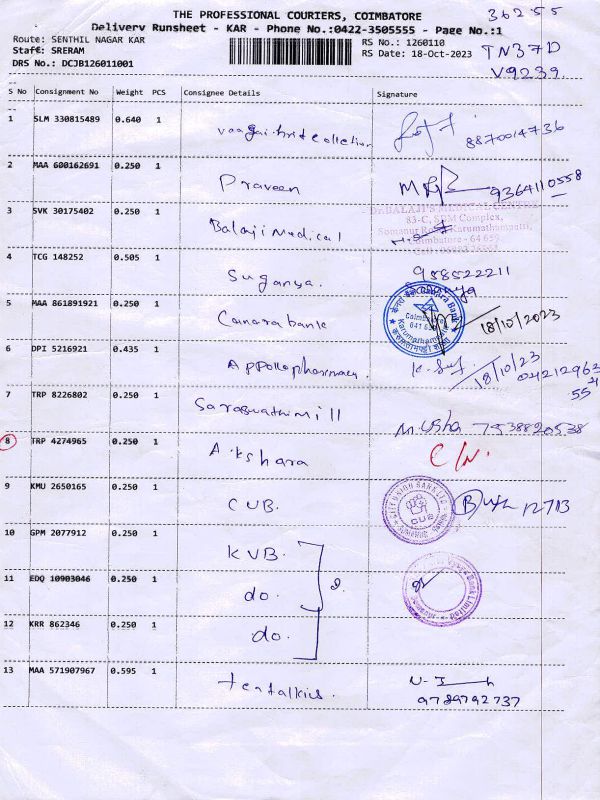 THE PROFESSIONAL COURIERS, COIMBATORE
36255
Delivery Runsheet - KAR - Phone No.:0422-3505555 - Page No.:1
Route: SENTHIL NAGAR KAR
RS No.: 1260110
TN37D
Staff: SRERAM
RS Date: 18-Oct-2023
V9239.
DRS No.: DCJB126011001
S No Consignment No Weight PCS Consignee Details Signature
1 SLM 330815489 0.640 1
8870014736
2 MAA 600162691 0.250 1 Praveen
9364110558
3 SVK 30175402 0.250 1 Balaji Medical
83-C, SPM Complex,
Somanur Road, Karumathampatti,
Coimbatore - 641 659
4 TCG 148252 0.505 1 Suganya.
958522211
5 MAA 861891921 0.250 1 Canara bank
Canara Bank
Coimbatore
18/10/2023
6 DPI 5216921 0.435 1 Appollo pharmacy
18/10/23
7 TRP 8226802 0.250 1 Saraswathi mill
M. Usha 7538820538
8 TRP 4274965 0.250 1 Akshara
C/N.
9 KMU 2650165 0.250 1 CUB.
CITY UNION BANK LTD
CUB
12713
10 GPM 2077912 0.250 1 KVB.
11 EDQ 10903046 0.250 1 do.
Vysya Bank Limited
12 KRR 862346 0.250 1 do.
13 MAA 571907967 0.595 1
9789792737